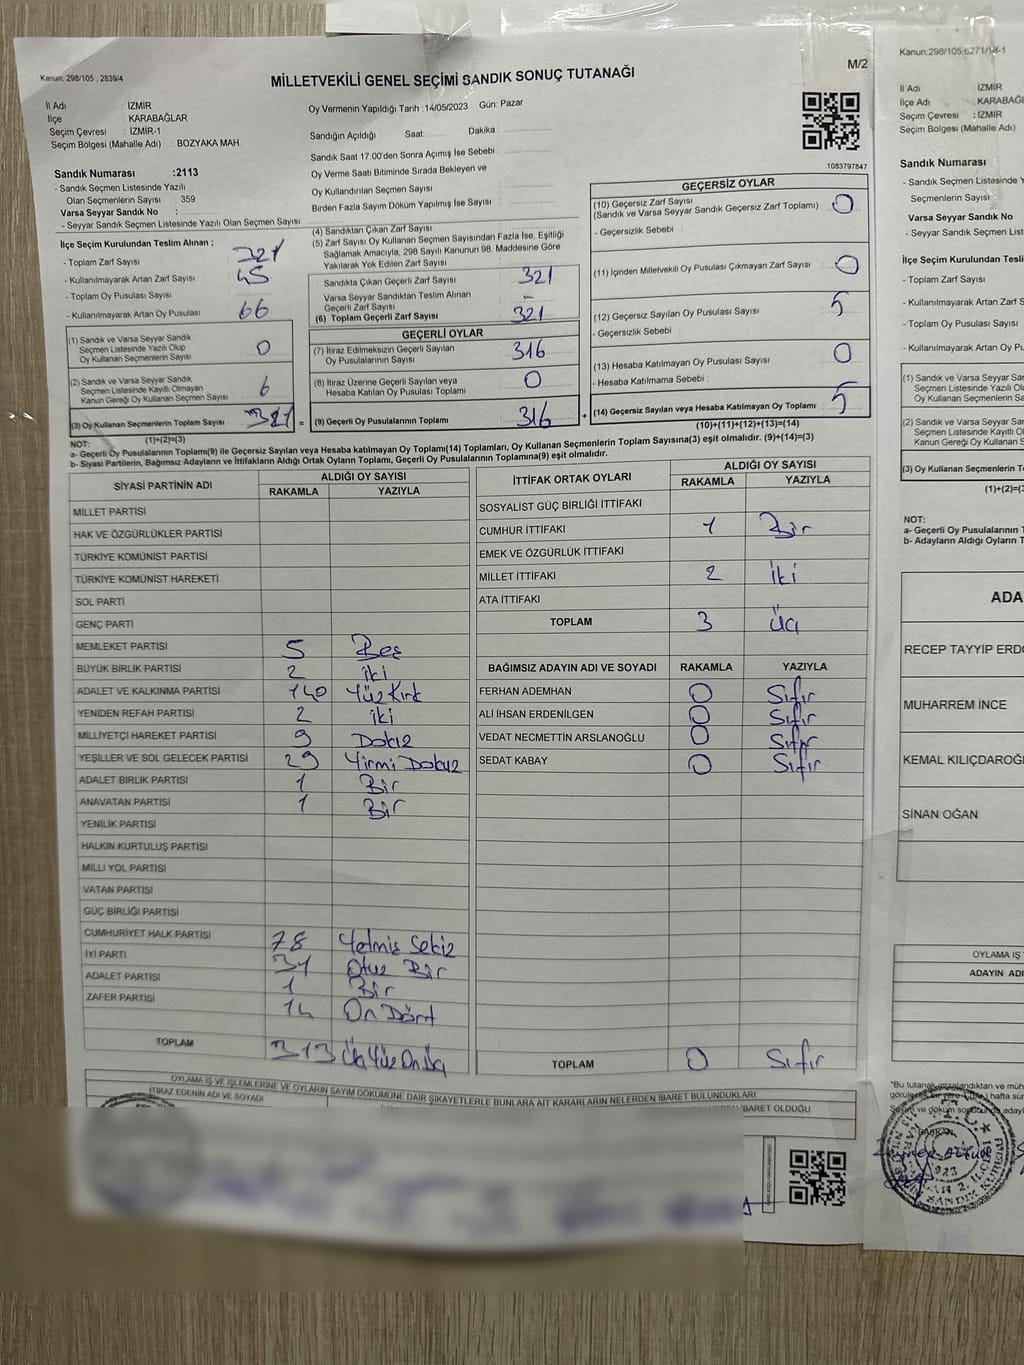 Kanun: 298/105 , 2839/4
MİLLETVEKİLİ GENEL SEÇİMİ SANDIK SONUÇ TUTANAĞI
M/2
İl Adı : İZMİR
İlçe : KARABAĞLAR
Seçim Çevresi : İZMİR-1
Seçim Bölgesi (Mahalle Adı) : BOZYAKA MAH.
Oy Vermenin Yapıldığı Tarih :14/05/2023 Gün: Pazar
Sandığın Açıldığı Saat: Dakika :
Sandık Saat 17:00'den Sonra Açımış İse Sebebi :
Oy Verme Saati Bitiminde Sırada Bekleyen ve
Oy Kullandırılan Seçmen Sayısı :
Birden Fazla Sayım Döküm Yapılmış İse Sayısı :
1083797847
Sandık Numarası :2113
- Sandık Seçmen Listesinde Yazılı
Olan Seçmenlerin Sayısı : 359
Varsa Seyyar Sandık No :
- Seyyar Sandık Seçmen Listesinde Yazılı Olan Seçmen Sayısı:
İlçe Seçim Kurulundan Teslim Alınan ;
- Toplam Zarf Sayısı
- Kullanılmayarak Artan Zarf Sayısı : 45
- Toplam Oy Pusulası Sayısı
- Kullanılmayarak Artan Oy Pusulası : 66
(1) Sandık ve Varsa Seyyar Sandık
Seçmen Listesinde Yazılı Olup
Oy Kullanan Seçmenlerin Sayısı 0
(2) Sandık ve Varsa Seyyar Sandık
Seçmen Listesinde Kayıtlı Olmayan
Kanun Gereği Oy Kullanan Seçmen Sayısı 6
(3) Oy Kullanan Seçmenlerin Toplam Sayısı 321
(1)+(2)=(3)
(4) Sandıktan Çıkan Zarf Sayısı
(5) Zarf Sayısı Oy Kullanan Seçmen Sayısından Fazla İse, Eşitliği
Sağlamak Amacıyla, 298 Sayılı Kanunun 98. Maddesine Göre
Yakılarak Yok Edilen Zarf Sayısı
Sandıkta Çıkan Geçerli Zarf Sayısı : 321
Varsa Seyyar Sandıktan Teslim Alınan
Geçerli Zarf Sayısı : -
(6) Toplam Geçerli Zarf Sayısı : 321
GEÇERLİ OYLAR
(7) İtiraz Edilmeksizin Geçerli Sayılan
Oy Pusulalarının Sayısı : 316
(8) İtiraz Üzerine Geçerli Sayılan veya
Hesaba Katılan Oy Pusulası Toplamı : 0
(9) Geçerli Oy Pusulalarının Toplamı : 316
GEÇERSİZ OYLAR
(10) Geçersiz Zarf Sayısı
(Sandık ve Varsa Seyyar Sandık Geçersiz Zarf Toplamı) : 0
- Geçersizlik Sebebi :
(11) İçinden Milletvekili Oy Pusulası Çıkmayan Zarf Sayısı : 0
(12) Geçersiz Sayılan Oy Pusulası Sayısı : 5
- Geçersizlik Sebebi :
(13) Hesaba Katılmayan Oy Pusulası Sayısı : 0
- Hesaba Katılmama Sebebi :
(14) Geçersiz Sayılan veya Hesaba Katılmayan Oy Toplamı : 5
(10)+(11)+(12)+(13)=(14)
NOT:
a- Geçerli Oy Pusulalarının Toplamı(9) ile Geçersiz Sayılan veya Hesaba katılmayan Oy Toplamı(14) Toplamları, Oy Kullanan Seçmenlerin Toplam Sayısına(3) eşit olmalıdır. (9)+(14)=(3)
b- Siyasi Partilerin, Bağımsız Adayların ve İttifakların Aldığı Ortak Oyların Toplamı, Geçerli Oy Pusulalarının Toplamına(9) eşit olmalıdır.
SİYASİ PARTİNİN ADI ALDIĞI OY SAYISI
RAKAMLA YAZIYLA
MİLLET PARTİSİ
HAK VE ÖZGÜRLÜKLER PARTİSİ
TÜRKİYE KOMÜNİST PARTİSİ
TÜRKİYE KOMÜNİST HAREKETİ
SOL PARTİ
GENÇ PARTİ
MEMLEKET PARTİSİ 5 Beş
BÜYÜK BİRLİK PARTİSİ 2 iki
ADALET VE KALKINMA PARTİSİ 140 Yüz Kırk
YENİDEN REFAH PARTİSİ 2 iki
MİLLİYETÇİ HAREKET PARTİSİ 9 Dokuz
YEŞİLLER VE SOL GELECEK PARTİSİ 29 Yirmi Dokuz
ADALET BİRLİK PARTİSİ 1 Bir
ANAVATAN PARTİSİ 1 Bir
YENİLİK PARTİSİ
HALKIN KURTULUŞ PARTİSİ
MİLLİ YOL PARTİSİ
VATAN PARTİSİ
GÜÇ BİRLİĞİ PARTİSİ
CUMHURİYET HALK PARTİSİ 78 Yetmiş Sekiz
İYİ PARTİ 31 Otuz Bir
ADALET PARTİSİ 1 Bir
ZAFER PARTİSİ 14 On Dört
TOPLAM 313 Üç Yüz On Üç
İTTİFAK ORTAK OYLARI ALDIĞI OY SAYISI
RAKAMLA YAZIYLA
SOSYALİST GÜÇ BİRLİĞİ İTTİFAKI
CUMHUR İTTİFAKI 1 Bir
EMEK VE ÖZGÜRLÜK İTTİFAKI
MİLLET İTTİFAKI 2 iki
ATA İTTİFAKI
TOPLAM 3 Üç
BAĞIMSIZ ADAYIN ADI VE SOYADI RAKAMLA YAZIYLA
FERHAN ADEMHAN 0 Sıfır
ALİ İHSAN ERDENİLGEN 0 Sıfır
VEDAT NECMETTİN ARSLANOĞLU 0 Sıfır
SEDAT KABAY 0 Sıfır
TOPLAM 0 Sıfır
OYLAMA İŞ VE İŞLEMLERİNE VE OYLARIN SAYIM DÖKÜMÜNE DAİR ŞİKAYETLERLE BUNLARA AİT KARARLARIN NELERDEN İBARET BULUNDUKLARI
İTİRAZ EDENİN ADI VE SOYADI
İBARET OLDUĞU
Kanun:298/105,6271/
İl Adı : İZMİR
İlçe Adı : KARABAĞ
Seçim Çevresi : İZMİR
Seçim Bölgesi (Mahalle Adı)
Sandık Numarası
- Sandık Seçmen Listesinde Yazılı
Seçmenlerin Sayısı :
Varsa Seyyar Sandık No
- Seyyar Sandık Seçmen List
İlçe Seçim Kurulundan Tesli
- Toplam Zarf Sayısı
- Kullanılmayarak Artan Zarf S
- Toplam Oy Pusulası Sayısı
- Kullanılmayarak Artan Oy Pu
(1) Sandık ve Varsa Seyyar San
Seçmen Listesinde Yazılı Ol
Oy Kullanan Seçmenlerin S
(2) Sandık ve Varsa Seyyar
Seçmen Listesinde Kayıtlı O
Kanun Gereği Oy Kullanan S
(3) Oy Kullanan Seçmenlerin T
(1)+(2)=(3
NOT:
a- Geçerli Oy Pusulalarının T
b- Adayların Aldığı Oyların T
ADA
RECEP TAYYİP ERD
MUHARREM İNCE
KEMAL KILIÇDAROĞ
SİNAN OĞAN
OYLAMA İŞ
ADAYIN ADI
"Bu tutanak imzalandıktan ve müh